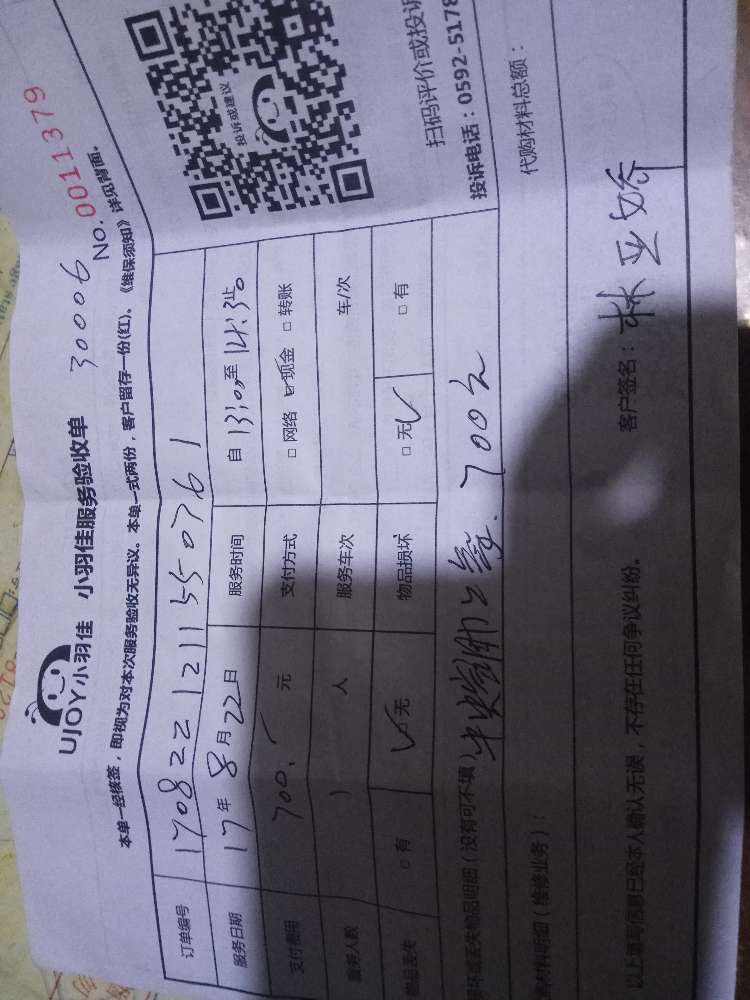 UJOY小羽佳 小羽佳服务验收单
30006
No. 0011379
本单一经核签，即视为对本次服务验收无异议。本单一式两份，客户留存一份(红)、《维保须知》详见背面。
订单编号 170822121155 0761
服务日期 17年8月22日 服务时间 自13:00至14:30止
支付费用 700.- 元 支付方式 □ 网络 ☑ 现金 □ 转账
服务人数 1 人 服务车次 车/次
物品丢失 □ 有 ✓无 物品损坏 □ 无✓ □ 有
丢失物品明细（没有可不填）
700元
材料明细（维修业务）：
代购材料总额：
以上填写信息已经本人确认无误，不存在任何争议纠纷。
客户签名：林亚娇
投诉或建议
扫码评价或投诉
投诉电话：0592-5178